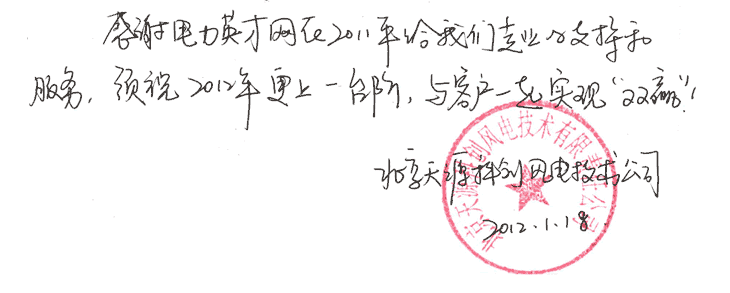 感谢电力英才网在2011年给我们企业的支持和
服务，预祝2012年更上一台阶，与客户一起实现“双赢”！
北京天源科创风电技术公司
2012.1.18
北京天源科创风电技术有限责任公司